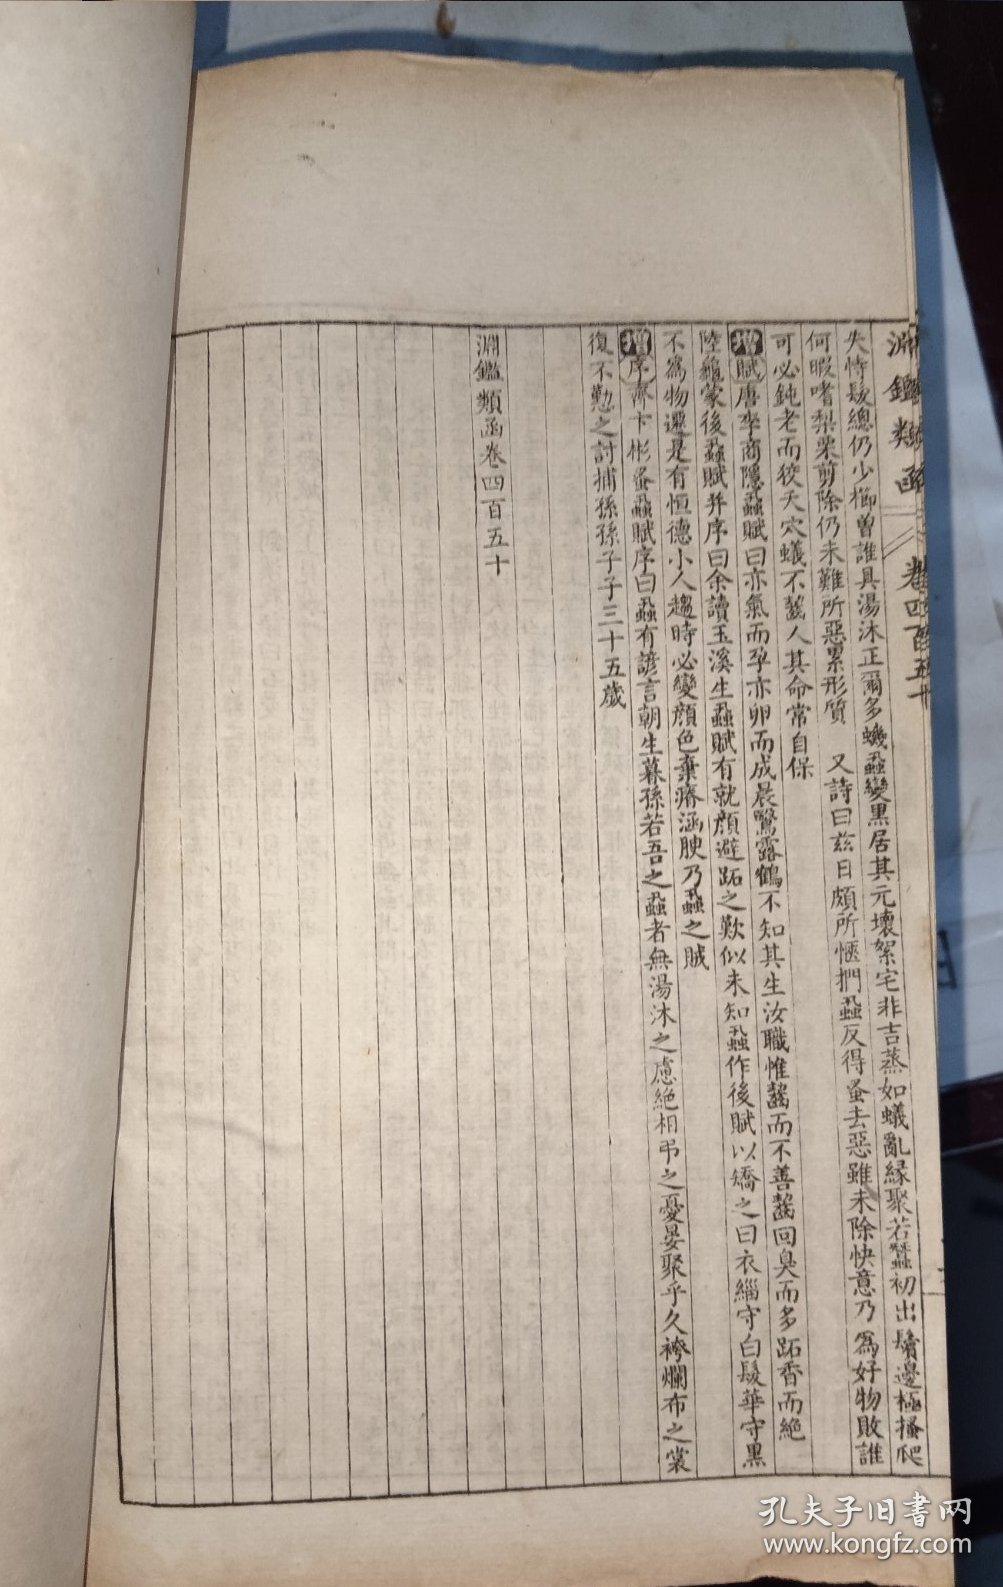 淵鑑類函 卷四百五十
失恃髮總仍少櫛曾誰具湯沐正爾多蟣蝨變黑居其元壞絮宅非吉蒸如蟻亂緣聚若蠶初出鬢邊極搔爬
何暇嗜梨栗剪除仍未難所惡累形質 又詩曰茲日頗所愜捫蝨反得蚤去惡雖未除快意乃為好物敗誰
可必鈍老而狡夭穴蟻不齧人其命常自保
增賦唐李商隱蝨賦曰亦氣而孕亦卵而成晨鷖露鶴不知其生汝職惟齧而不善齧回臭而多跖香而絕
陸龜蒙後蝨賦并序曰余讀玉溪生蝨賦有就顏避跖之歎似未知蝨作後賦以矯之曰衣緇守白髮華守黑
不為物遷是有恒德小人趨時必變顏色棄瘠涵腴乃蝨之賊
增序齊卞彬蚤蝨賦序曰蝨有諺言朝生暮孫若吾之蝨者無湯沐之慮絕相弔之憂晏聚乎久袴爛布之裳
復不懃之討捕孫孫子子三十五歲
淵鑑類函卷四百五十
孔夫子旧书网
www.kongfz.com